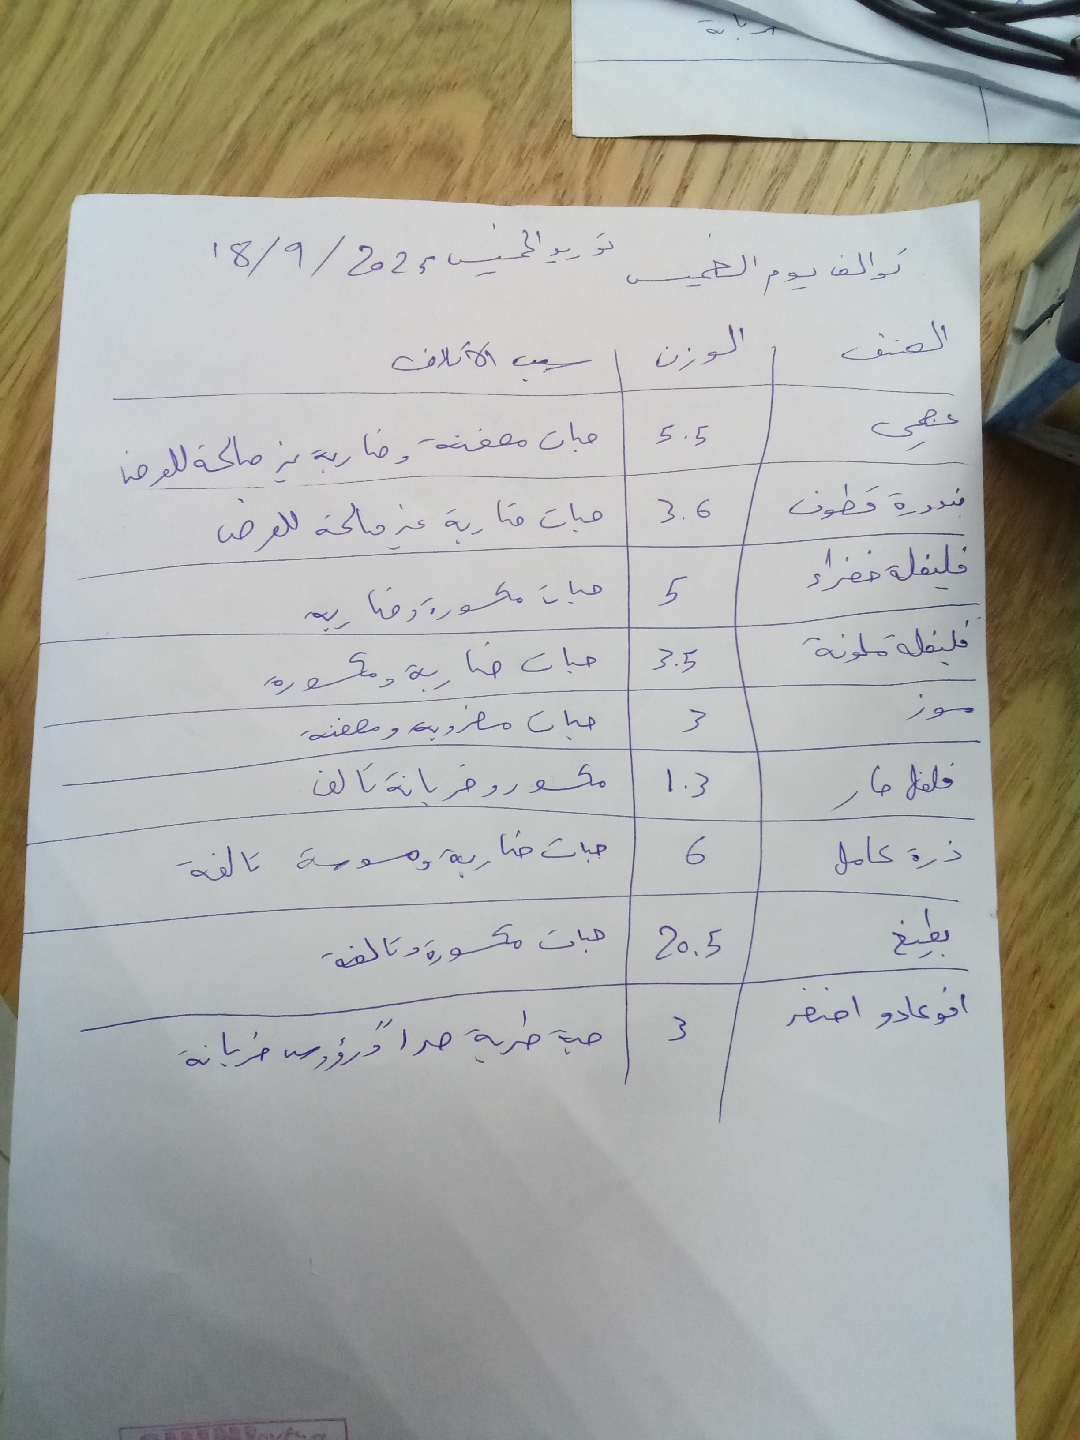 ربانة
توالف يوم الخميس توريو الخميس 18/9/2025
الصنف الوزن سبب الأتلاف
عجمي 5.5 حبات معفنة وضاربة غير صالحة للعرض
بندورة قطوف 3.6 حبات ضاربة غير صالحة للعرض
فليفلة خضراء 5 حبات مكسورة وضاربه
فليفلة ملونة 3.5 حبات ضاربة ومكسورة
موز 3 حبات ومعفنة
فلفل حار 1.3 مكسور وخربانة تالف
ذرة عامل 6 حبات ضاربة ومسوسة تالفة
بطيخ 20.5 حبات مكسورة وتالفة
افوعادو اخضر 3 حبة طرية جداً ورؤوس خربانة